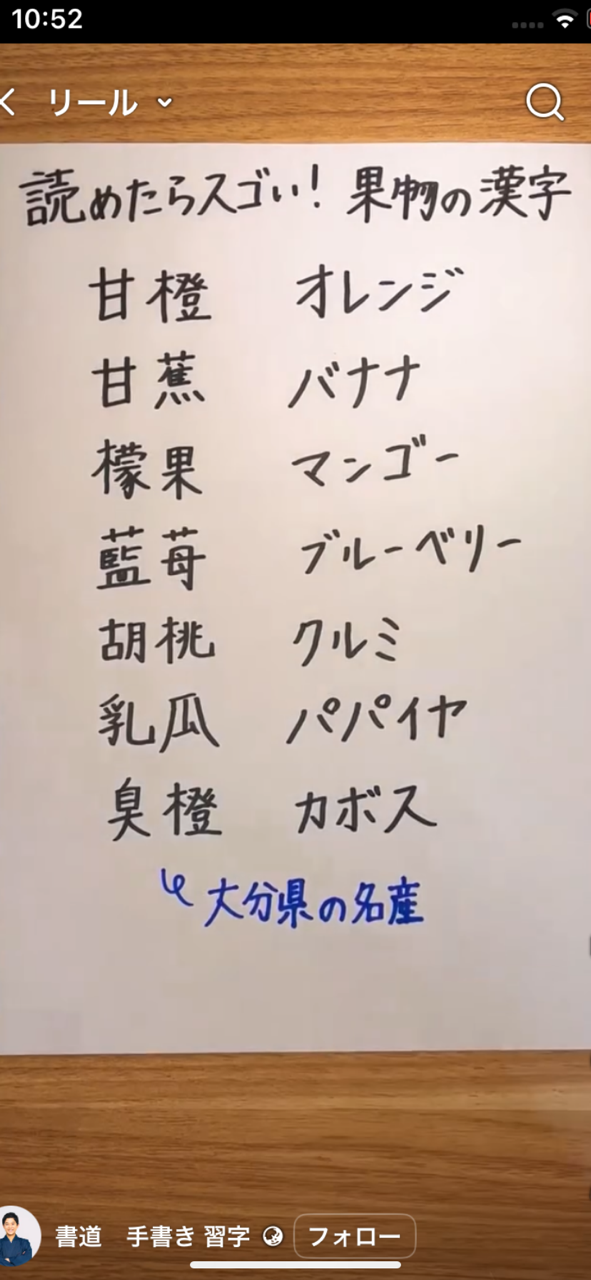 10:52
リール
読めたらスゴい! 果物の漢字
甘橙 オレンジ
甘蕉 バナナ
檬果 マンゴー
藍苺 ブルーベリー
胡桃 クルミ
乳瓜 パパイヤ
臭橙 カボス
大分県の名産
書道 手書き 習字 フォロー